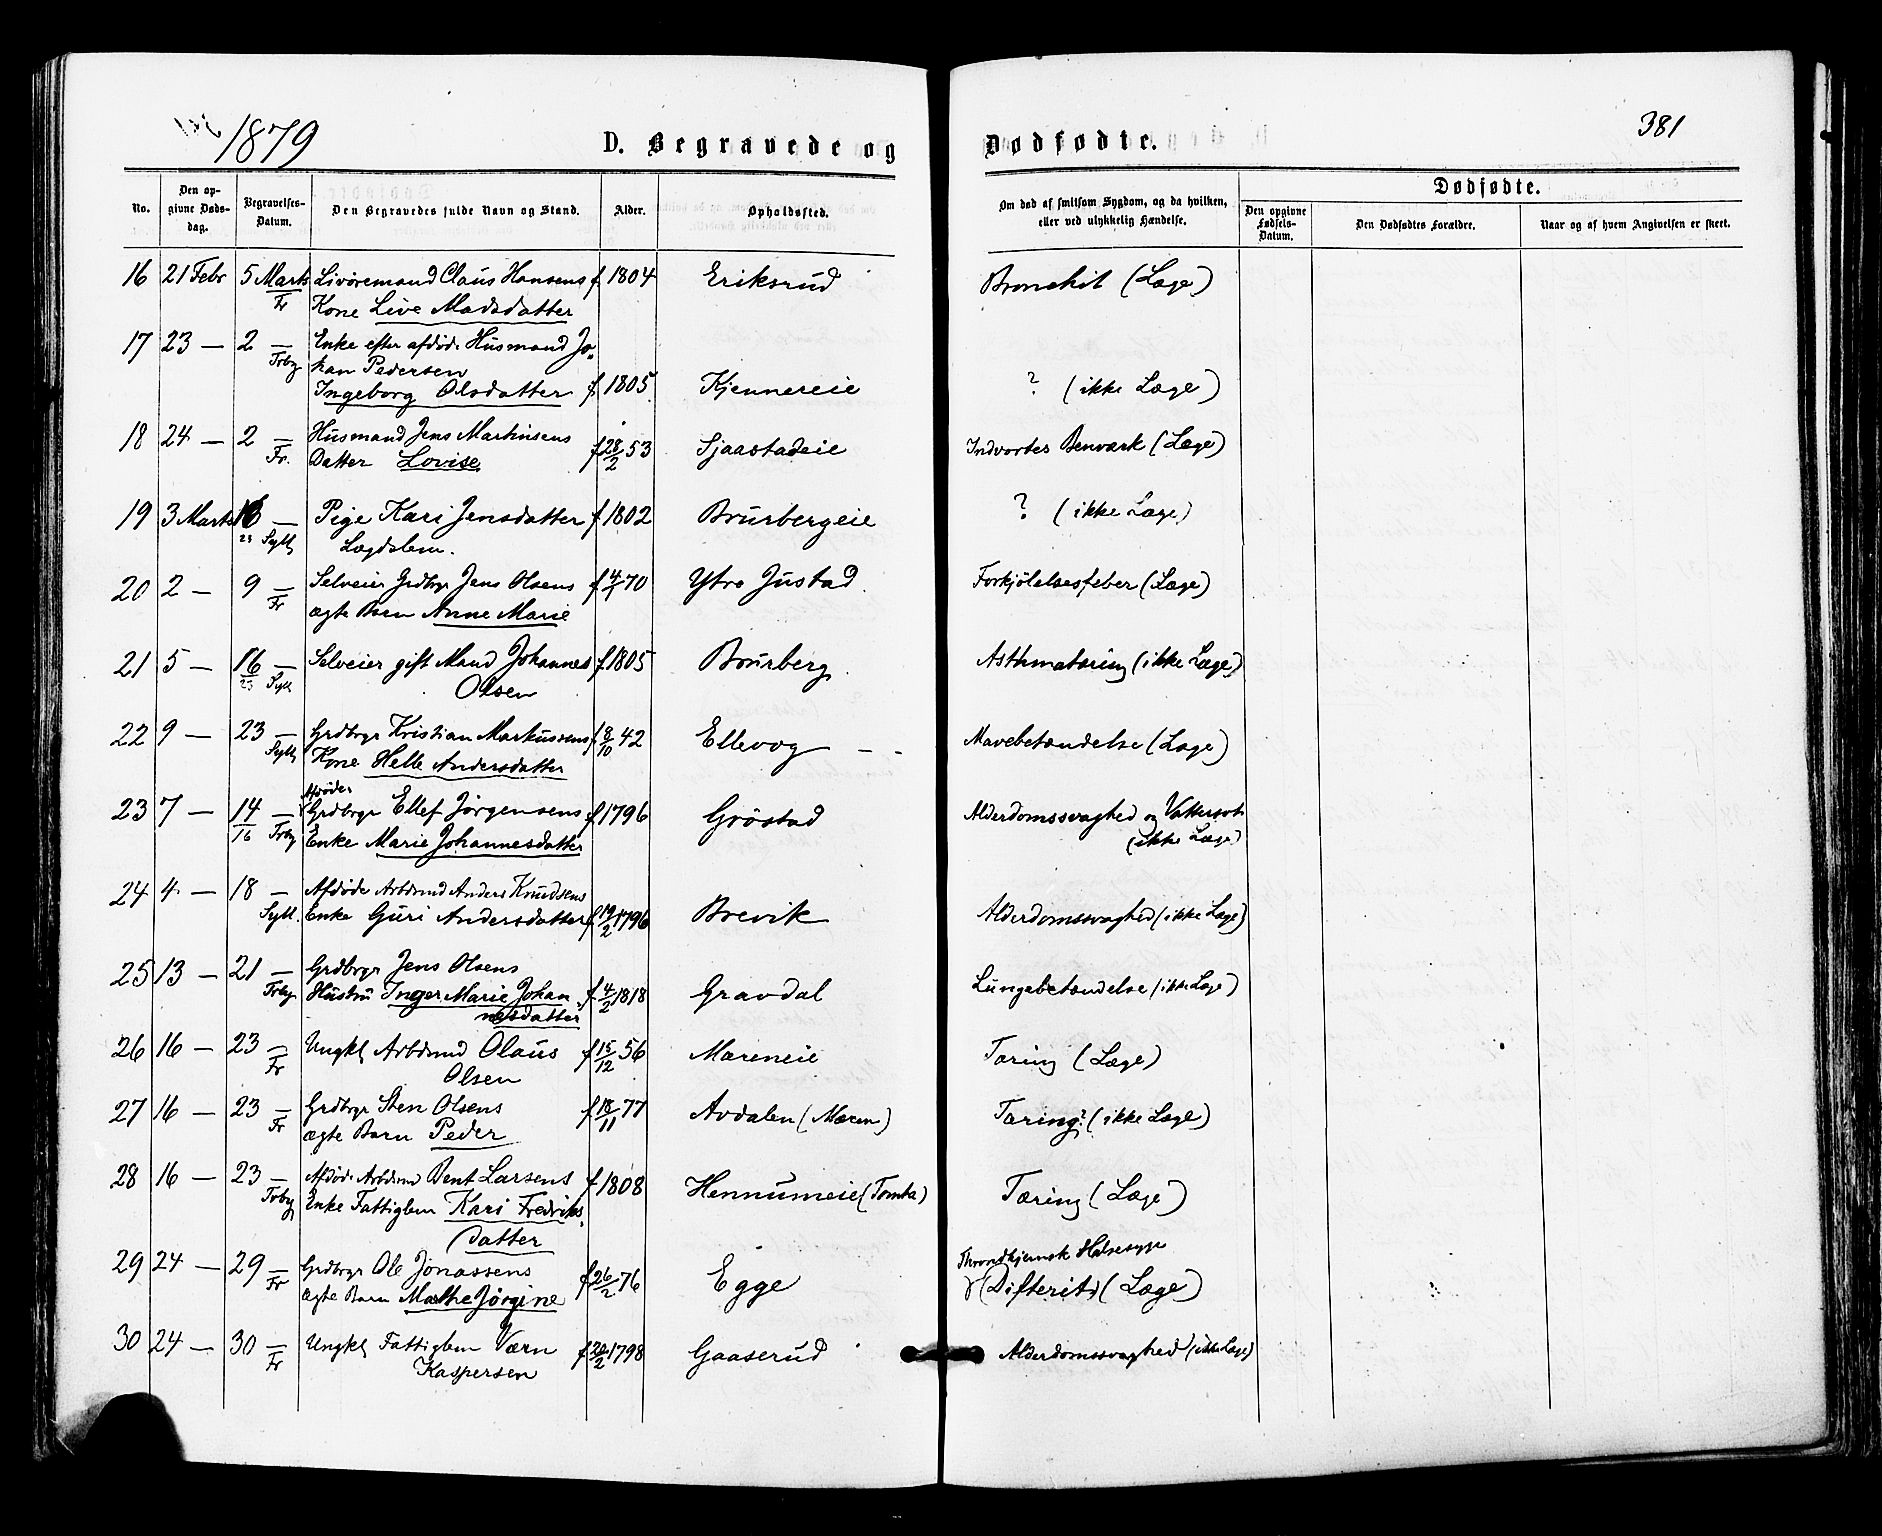 1879
D. Begravede og Dødfødte.
381
No.
Den opgivne Dødsdag.
Begravelses-Datum.
Den Begravedes fulde Navn og Stand.
Alder.
Opholdsted.
Om død af smitsom Sygdom, og da hvilken, eller ved ulykkelig Hændelse.
Dødfødte.
Den opgivne Fødsels-Datum.
Den Dødfødtes Forældre.
Naar og af hvem Angivelsen er skeet.
16 21 Febr 5 Marts Fr Livøremand Claus Hansens f 1804 Eriksrud Bronchit (Læge)
Kone Live Madsdatter
17 23 — 2 — Frby Enke efter afdøde Husmand Jo-
han Pedersen
Ingeborg Olsdatter f 1805 Kjennereie ? (ikke Læge)
18 24 — 2 — Fr. Husmand Jens Martinsens f 28/2 53 Sjaastadeie Indvortes Benværk (Læge)
Datter Lovise
19 3 Marts 23 Syll Pige Kari Jensdatter f 1802 Brurbergeie ? (ikke Læge)
Lægdslem.
20 2 — 9 — Fr Selveier Grdbrgr Jens Olsens f 4/1 70 Ytre Justad Forkjølelsesfeber (Læge)
ægte Barn Anne Marie
21 5 — 16/23 — Syll Selveier gift Mand Johannes f 1805 Brurberg Asthmatæring (ikke Læge)
Olsen
22 9 — 23 — Syll Grdbrgr Kristian Markussens f 8/10 42 Ellevog — - Mavebetændelse (Læge)
Kone Helle Andersdatter
Afdøde
23 7 — 14/16 — Frby Grdbrgr Ellef Jørgensens f 1796 Gröstad Alderdomssvaghed og Vattersot
Enke Marie Johannesdatter (ikke Læge)
24 4 — 18 — Syll. Afdøde Arbdmd Anders Knudsens
Enke Guri Andersdatter f 19/2 1796 Brevik Alderdomssvaghed (ikke Læge)
25 13 — 21 — Frby Grdbrgr Jens Olsens
Hustru Inger Marie Johan- f 4/2 1818 Gravdal Lungebetændelse (ikke Læge)
nesdatter
26 16 — 23 — Fr Ungkl Arbdmd Olaus f 15/12 56 Mareneie Tæring (Læge)
Olsen
27 16 — 23 — Fr Grdbrgr Sten Olsens f 18/11 77 Avdalen (Mæren) Tæring? (ikke Læge)
ægte Barn Peder
28 16 — 23 — Frby Afdøde Arbdmd Bent Larsens f 1808 Hennumeie (Tomta) Tæring (Læge)
Enke Fattiglem Kari Fredriks-
datter
29 24 — 29 — Fr Grdbrgr Ole Jonassens f 26/2 76 Egge Throndhjemsk Halssyge
ægte Barn Mathe Jørgine (Difterit) (Læge)
30 24 — 30 — Fr Ungkl Fattiglem Værn f 20/2 1798 Gaaserud Alderdomssvaghed (ikke Læge)
Kaspersen